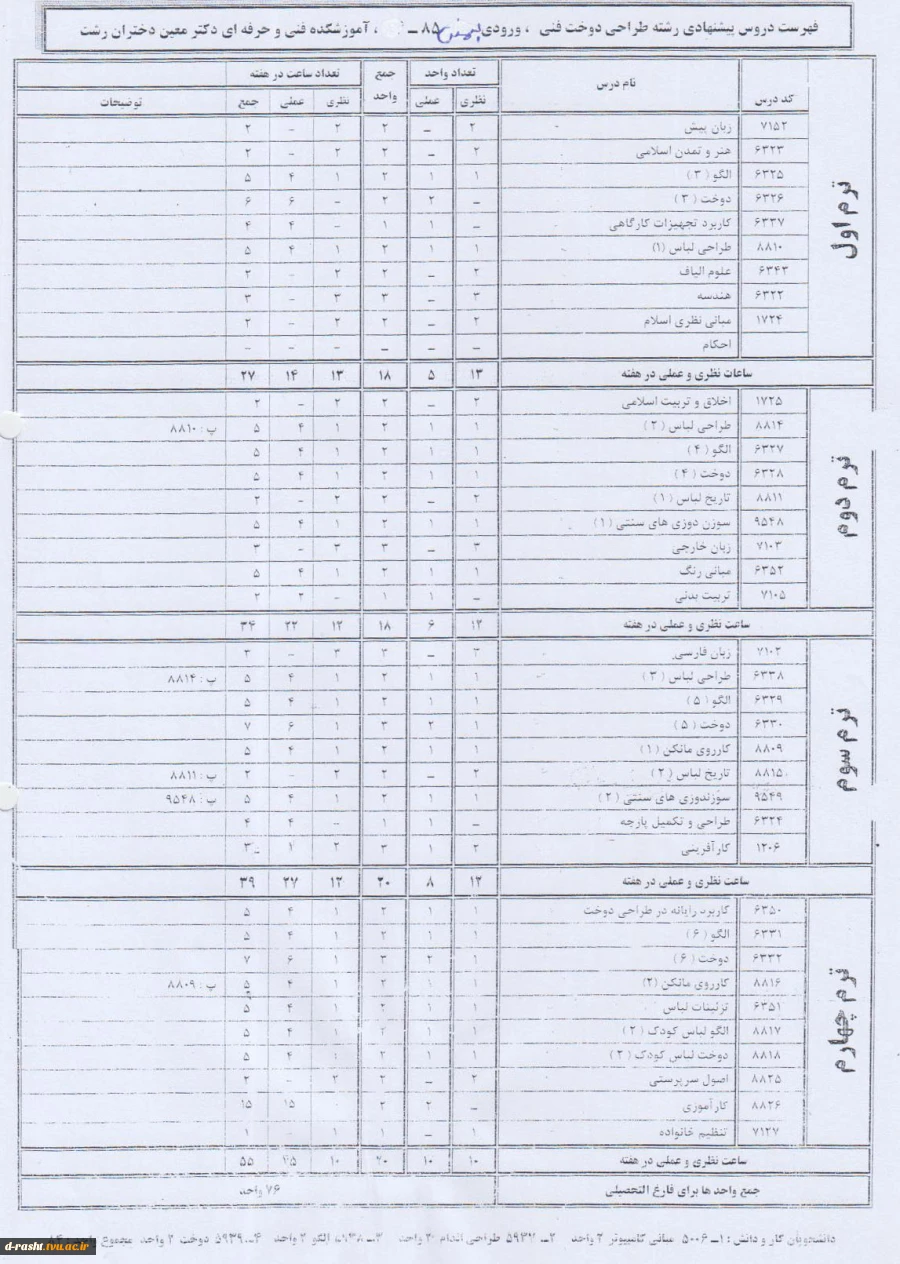 فهرست دروس پیشنهادی رشته طراحی دوخت فنی ، ورودی بهمن ۸۵ ، آموزشکده فنی و حرفه ای دکتر معین دختران رشت
کد درس نام درس تعداد واحد جمع واحد تعداد ساعت در هفته توضیحات
نظری عملی نظری عملی جمع
ترم اول
۷۱۵۲ زبان پیش ۲ – ۲ ۲ – ۲
۶۳۲۳ هنر و تمدن اسلامی ۲ – ۲ ۲ – ۲
۶۳۲۵ الگو ( ۳ ) ۱ ۱ ۲ ۱ ۴ ۵
۶۳۲۶ دوخت ( ۳ ) – ۲ ۲ – ۶ ۶
۶۳۳۷ کاربرد تجهیزات کارگاهی – ۱ ۱ – ۴ ۴
۸۸۱۰ طراحی لباس (۱) ۱ ۱ ۲ ۱ ۴ ۵
۶۳۴۳ علوم الیاف ۲ – ۲ ۲ – ۲
۶۳۲۲ هندسه ۳ – ۳ ۳ – ۳
۱۷۲۴ مبانی نظری اسلام ۲ – ۲ ۲ – ۲
احکام – – – – – –
ساعات نظری و عملی در هفته ۱۳ ۵ ۱۸ ۱۳ ۱۴ ۲۷
ترم دوم
۱۷۲۵ اخلاق و تربیت اسلامی ۲ – ۲ ۲ – ۲
۸۸۱۴ طراحی لباس ( ۲ ) ۱ ۱ ۲ ۱ ۴ ۵ پ : ۸۸۱۰
۶۳۲۷ الگو ( ۴ ) ۱ ۱ ۲ ۱ ۴ ۵
۶۳۲۸ دوخت ( ۴ ) ۱ ۱ ۲ ۱ ۴ ۵
۸۸۱۱ تاریخ لباس ( ۱ ) ۲ – ۲ ۲ – ۲
۹۵۴۸ سوزن دوزی های سنتی ( ۱ ) ۱ ۱ ۲ ۱ ۴ ۵
۷۱۰۳ زبان خارجی ۳ – ۳ ۳ – ۳
۶۳۵۲ مبانی رنگ ۱ ۱ ۲ ۱ ۴ ۵
۷۱۰۵ تربیت بدنی – ۱ ۱ – ۲ ۲
ساعت نظری و عملی در هفته ۱۲ ۶ ۱۸ ۱۲ ۲۲ ۳۴
ترم سوم
۷۱۰۲ زبان فارسی ۳ – ۳ ۳ – ۳
۶۳۳۸ طراحی لباس ( ۳ ) ۱ ۱ ۲ ۱ ۴ ۵ پ : ۸۸۱۴
۶۳۲۹ الگو ( ۵ ) ۱ ۱ ۲ ۱ ۴ ۵
۶۳۳۰ دوخت ( ۵ ) ۱ ۲ ۳ ۱ ۶ ۷
۸۸۰۹ کارروی مانکن ( ۱ ) ۱ ۱ ۲ ۱ ۴ ۵
۸۸۱۵ تاریخ لباس ( ۲ ) ۲ – ۲ ۲ – ۲ پ : ۸۸۱۱
۹۵۴۹ سوزندوزی های سنتی ( ۲ ) ۱ ۱ ۲ ۱ ۴ ۵ پ : ۹۵۴۸
۶۳۲۴ طراحی و تکمیل پارچه – ۱ ۱ – ۴ ۴
۱۲۰۶ کارآفرینی ۲ ۱ ۳ ۲ ۱ ۳
ساعت نظری و عملی در هفته ۱۲ ۸ ۲۰ ۱۲ ۲۷ ۳۹
ترم چهارم
۶۳۵۰ کاربرد رایانه در طراحی دوخت ۱ ۱ ۲ ۱ ۴ ۵
۶۳۳۱ الگو ( ۶ ) ۱ ۱ ۲ ۱ ۴ ۵
۶۳۳۲ دوخت ( ۶ ) ۱ ۲ ۳ ۱ ۶ ۷
۸۸۱۶ کارروی مانکن (۲) ۱ ۱ ۲ ۱ ۴ ۵ پ : ۸۸۰۹
۶۳۵۱ تزئینات لباس ۱ ۱ ۲ ۱ ۴ ۵
۸۸۱۷ الگو لباس کودک ( ۲ ) ۱ ۱ ۲ ۱ ۴ ۵
۸۸۱۸ دوخت لباس کودک ( ۲ ) ۱ ۱ ۲ ۱ ۴ ۵
۸۸۲۵ اصول سرپرستی ۲ – ۲ ۲ – ۲
۸۸۲۶ کارآموزی – ۲ ۲ ۱۵ ۱۵
۷۱۲۷ تنظیم خانواده ۱ – ۱ ۱ – ۱
ساعت نظری و عملی در هفته ۱۰ ۱۰ ۲۰ ۱۰ ۴۵ ۵۵
جمع واحد ها برای فارغ التحصیلی ۷۶ واحد
دانشجویان کار و دانش : ۱– ۵۰۰۶ مبانی کامپیوتر ۲ واحد ۲– ۵۹۳۷ طراحی اندام ۲ واحد ۳– الگو ۲ واحد ۴– ۵۹۳۹ دوخت ۲ واحد مجموع
d-rasht.tvu.ac.ir